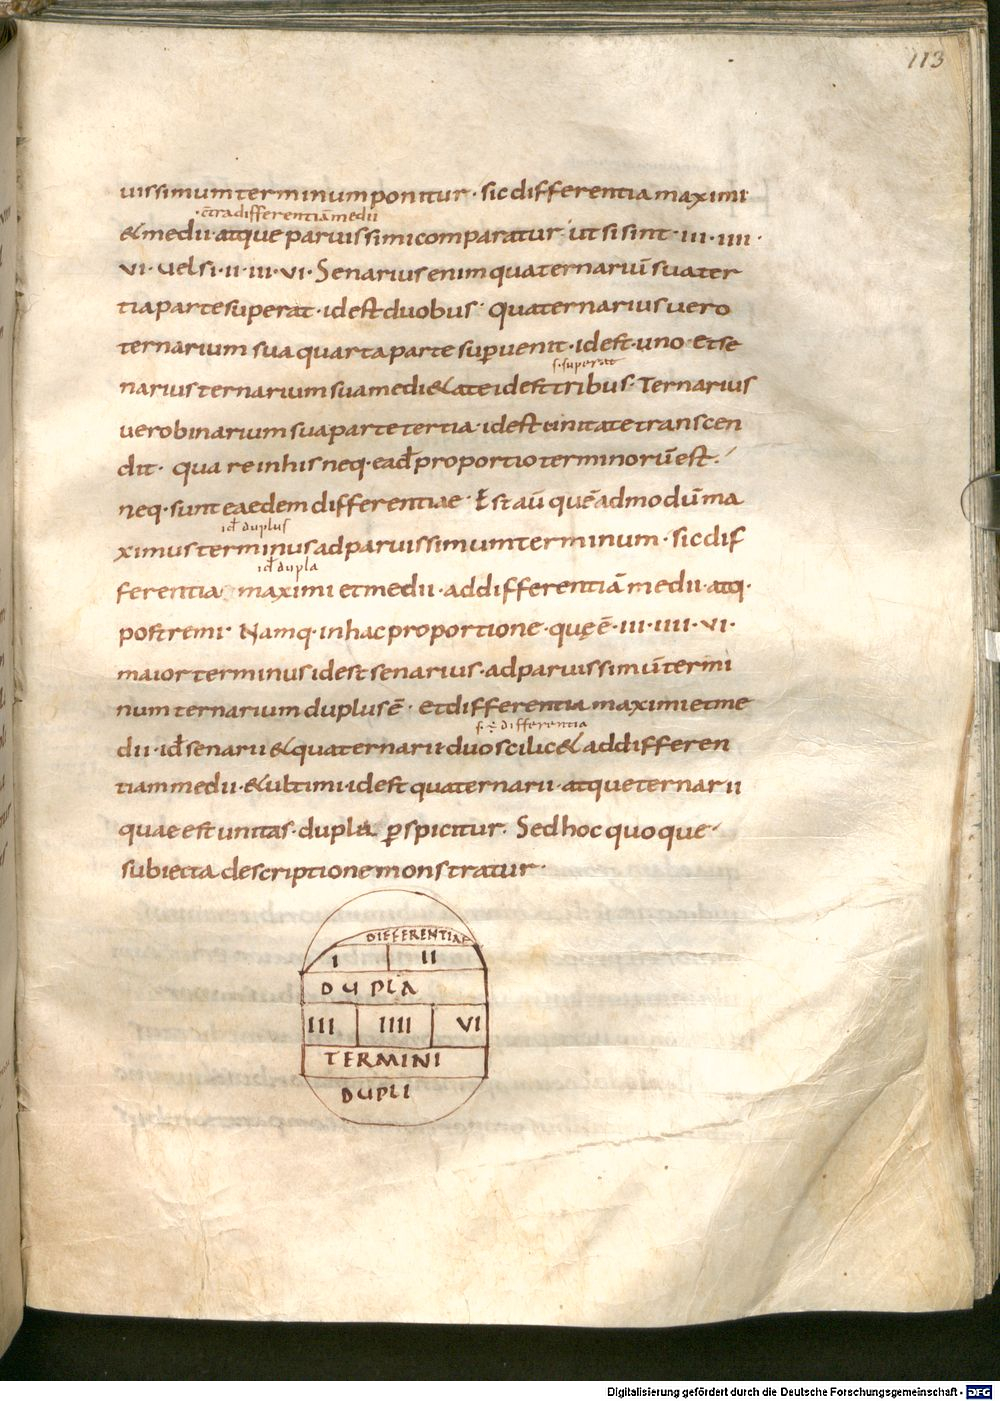 113
uissimum terminum ponitur · sic differentia maximi
· c̄tra differentiam medii
& medii · atque paruissimi comparatur · ut si sint · III · IIII ·
VI · Uel si · II · III · VI · Senarius enim quaternariū sua ter
tia parte superat · id est duobus · quaternarius uero
ternarium sua quarta parte sup̄uenit · id est · uno · Et se
s · superat
narius ternarium sua medi&ate id est tribus · Ternarius
uero binarium sua parte tertia · id est unitate transcen
dit · qua re in his neq · ead̄ proportio terminorū est ·
neq · sunt eaedem differentiae · Est aū quēadmodū ma
id̄ duplus
ximus terminus ad paruissimum terminum · sic dif
id̄ dupla
ferentia maximi et medii · ad differentiā medii · atq ·
postremi · Namq · in hac proportione · quę ē · III · IIII · VI ·
maior terminus id est senarius · ad paruissimū termi
num ternarium duplus ē · et differentia maximi et me
s · ē · differentia
dii · id̄ senarii & quaternarii duo scilic& ad differen
tiam medii · & ultimi · id est quaternarii · atque ternarii
quae est unitas · dupla p̱spicitur · Sed hoc quoque
subiecta descriptione monstratur ·
DIFFERENTIAE
I II
DUPLA
III IIII VI
TERMINI
DUPLI
Digitalisierung gefördert durch die Deutsche Forschungsgemeinschaft - DFG